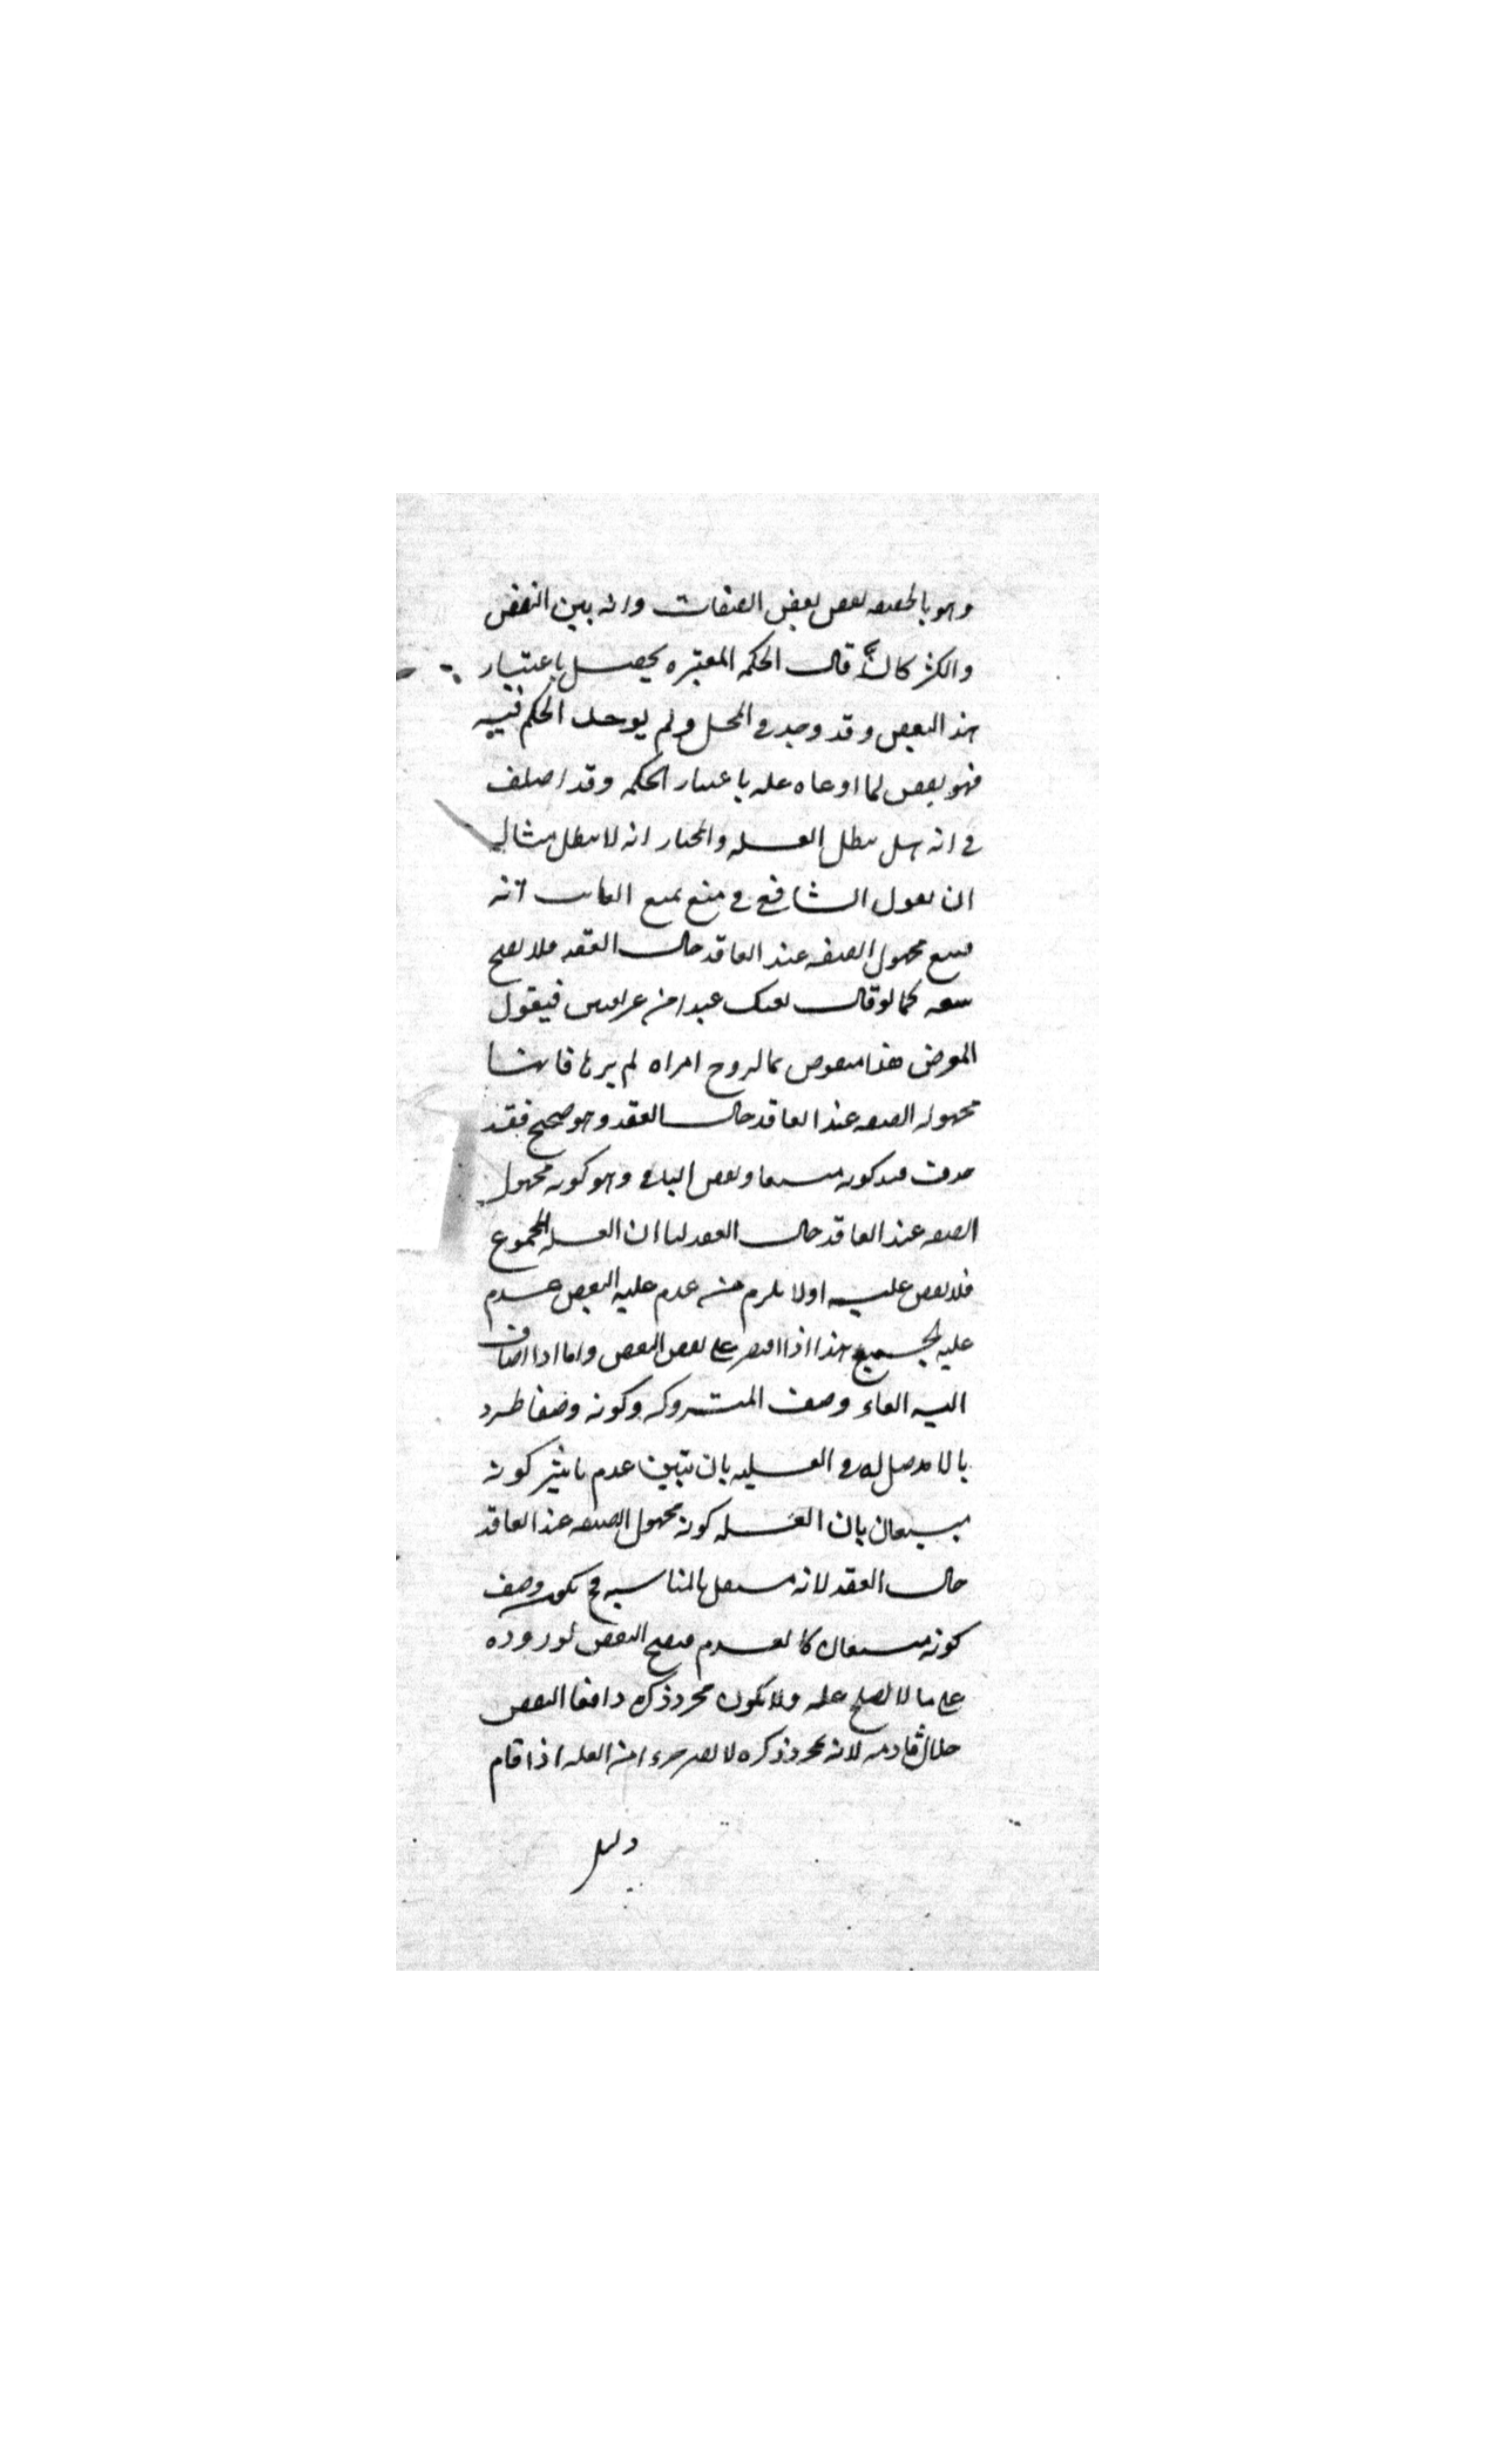 وهو بالحقيقه نقض بعض الصفات وانه بين النقض
والكسر كانّه قال الحكمه المعتبره يحصل باعتبار
هذا البعض وقد وجد في المحل ولم يوجد الحكم فيه
فهو نقض لما ادعاه عله باعتبار الحكمه وقد اختلف
في انه هل يبطل العله والمختار انه لا يبطل مثاله
ان يقول الشافعي في منع بيع الغايب انه
مبيع مجهول الصفه عند العاقد حال العقد فلا يصح
بيعه كما لو قال بعتك عبدا من غير تعيين فيقول
المعترض هذا منقوض بما لو تزوج امراه لم يرها فانها
مجهوله الصفه عند العاقد حال العقد وهو صحيح فقد
حذف قيد كونه مبيعا ونقض الباقي وهو كونه مجهول
الصفه عند العاقد حال العقد لنا ان العله المجموع
فلا نقض عليه اولا يلزم من عدم عليه البعض عدم
عليه الجميع هذا اذا اقتصر على نقض البعض واما اذا اضاف
اليه الغاء وصف المتروكه وكونه وصفا طرد
يا لا مدخل له في العليه بان تبين عدم تاثير كونه
مبيعا بان العله كونه مجهول الصفه عند العاقد
حال العقد لانه مستقل بالمناسبه فح يكون وصف
كونه مبيعا كالعدم فيصح النقض لوروده
على ما لا يصلح عله ولا يكون مجرد ذكره دافعا النقض
خلافا لشرذمه لانه بمجرد ذكره لا يصير جزء من العله اذا قام
دليل